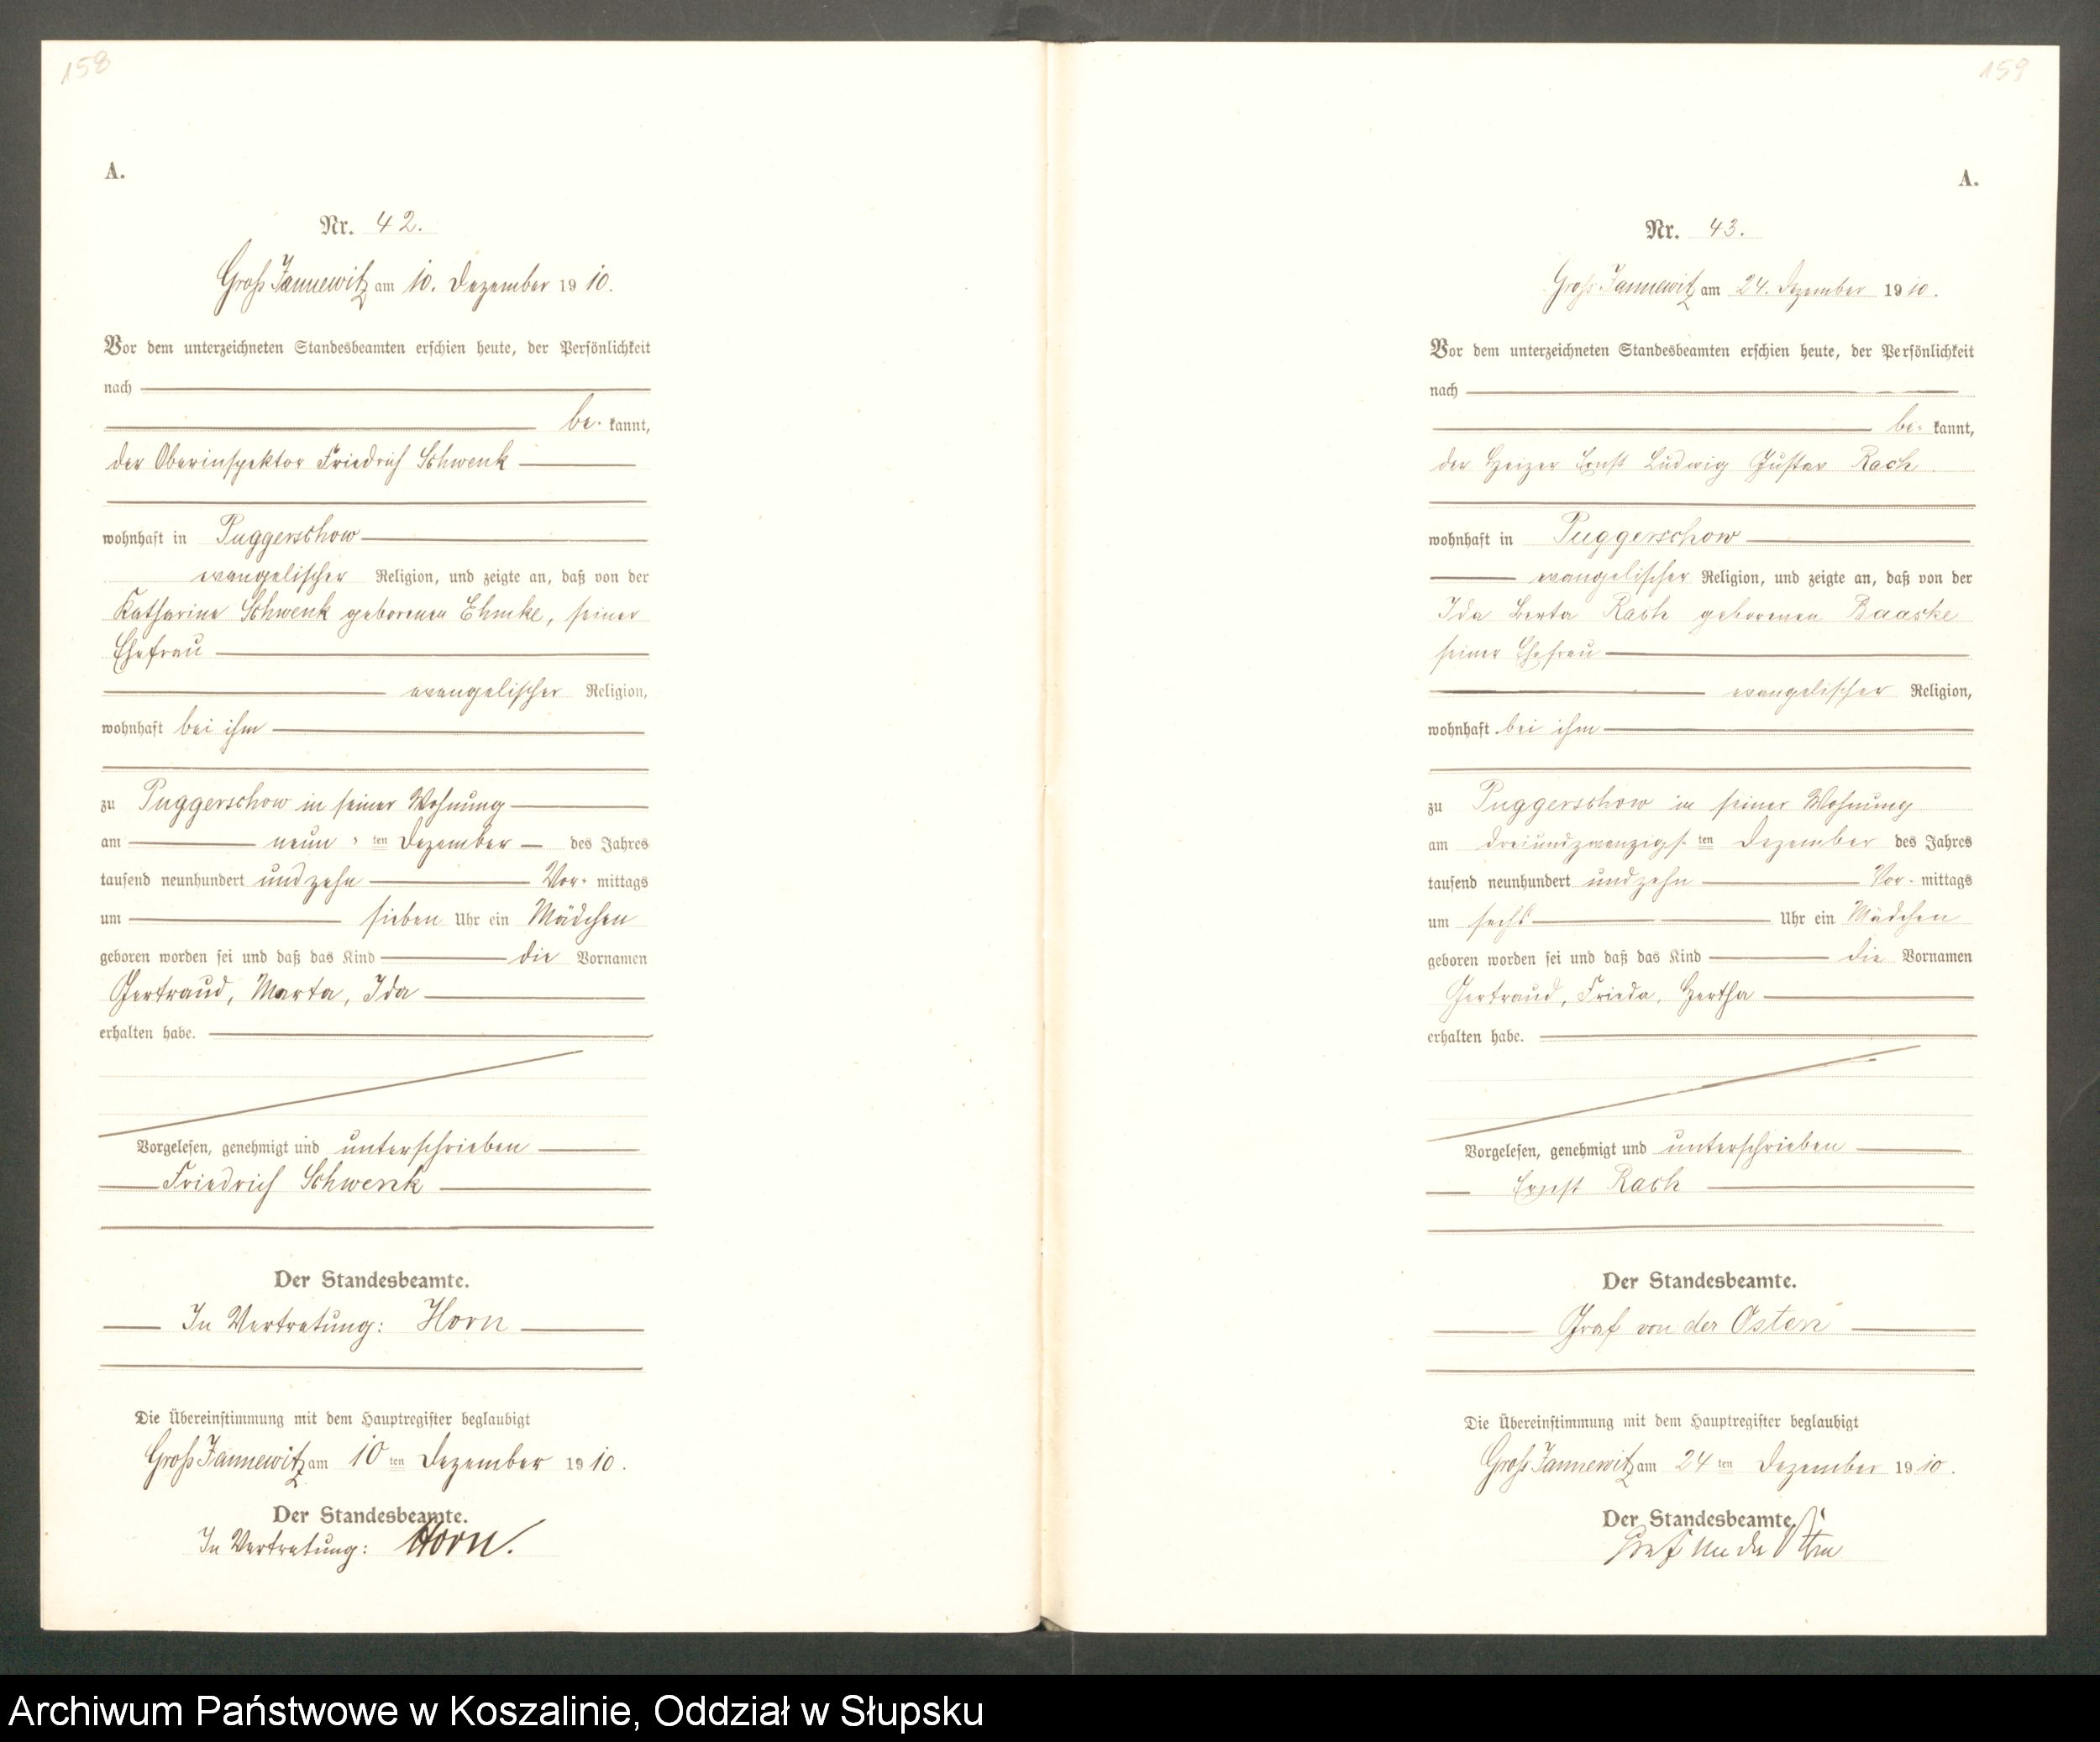 158
A.
Nr. 42.
Groß Jannewitz am 10. Dezember 1910.
Vor dem unterzeichneten Standesbeamten erschien heute, der Persönlichkeit
nach
be- kannt,
der Oberinspektor Friedrich Schwenk
wohnhaft in Puggerschow
evangelischer Religion, und zeigte an, daß von der
Katharine Schwenk geborenen Ehmke, seiner
Ehefrau
evangelischer Religion,
wohnhaft bei ihm
zu Puggerschow in seiner Wohnung
am neun- ten Dezember des Jahres
tausend neunhundert und zehn Vor- mittags
um sieben Uhr ein Mädchen
geboren worden sei und daß das Kind die Vornamen
Gertraud, Marta, Ida
erhalten habe.
Vorgelesen, genehmigt und unterschrieben
Friedrich Schwenk
Der Standesbeamte.
In Vertretung: Horn
Die Übereinstimmung mit dem Hauptregister beglaubigt
Groß Jannewitz am 10 ten Dezember 1910.
Der Standesbeamte.
In Vertretung: Horn.
159
A.
Nr. 43.
Groß Jannewitz am 24. Dezember 1910.
Vor dem unterzeichneten Standesbeamten erschien heute, der Persönlichkeit
nach
be- kannt,
der Heizer Ernst Ludwig Gustav Rach
wohnhaft in Puggerschow
evangelischer Religion, und zeigte an, daß von der
Ida Berta Rach geborenen Baaske
seiner Ehefrau
evangelischer Religion,
wohnhaft bei ihm
zu Puggerschow in seiner Wohnung
am dreiundzwanzigs- ten Dezember des Jahres
tausend neunhundert und zehn Vor- mittags
um sechs Uhr ein Mädchen
geboren worden sei und daß das Kind die Vornamen
Gertraud, Frieda, Hertha
erhalten habe.
Vorgelesen, genehmigt und unterschrieben
Ernst Rach
Der Standesbeamte.
Graf von der Osten
Die Übereinstimmung mit dem Hauptregister beglaubigt
Groß Jannewitz am 24 ten Dezember 1910.
Der Standesbeamte.
Graf von der Osten
Archiwum Państwowe w Koszalinie, Oddział w Słupsku